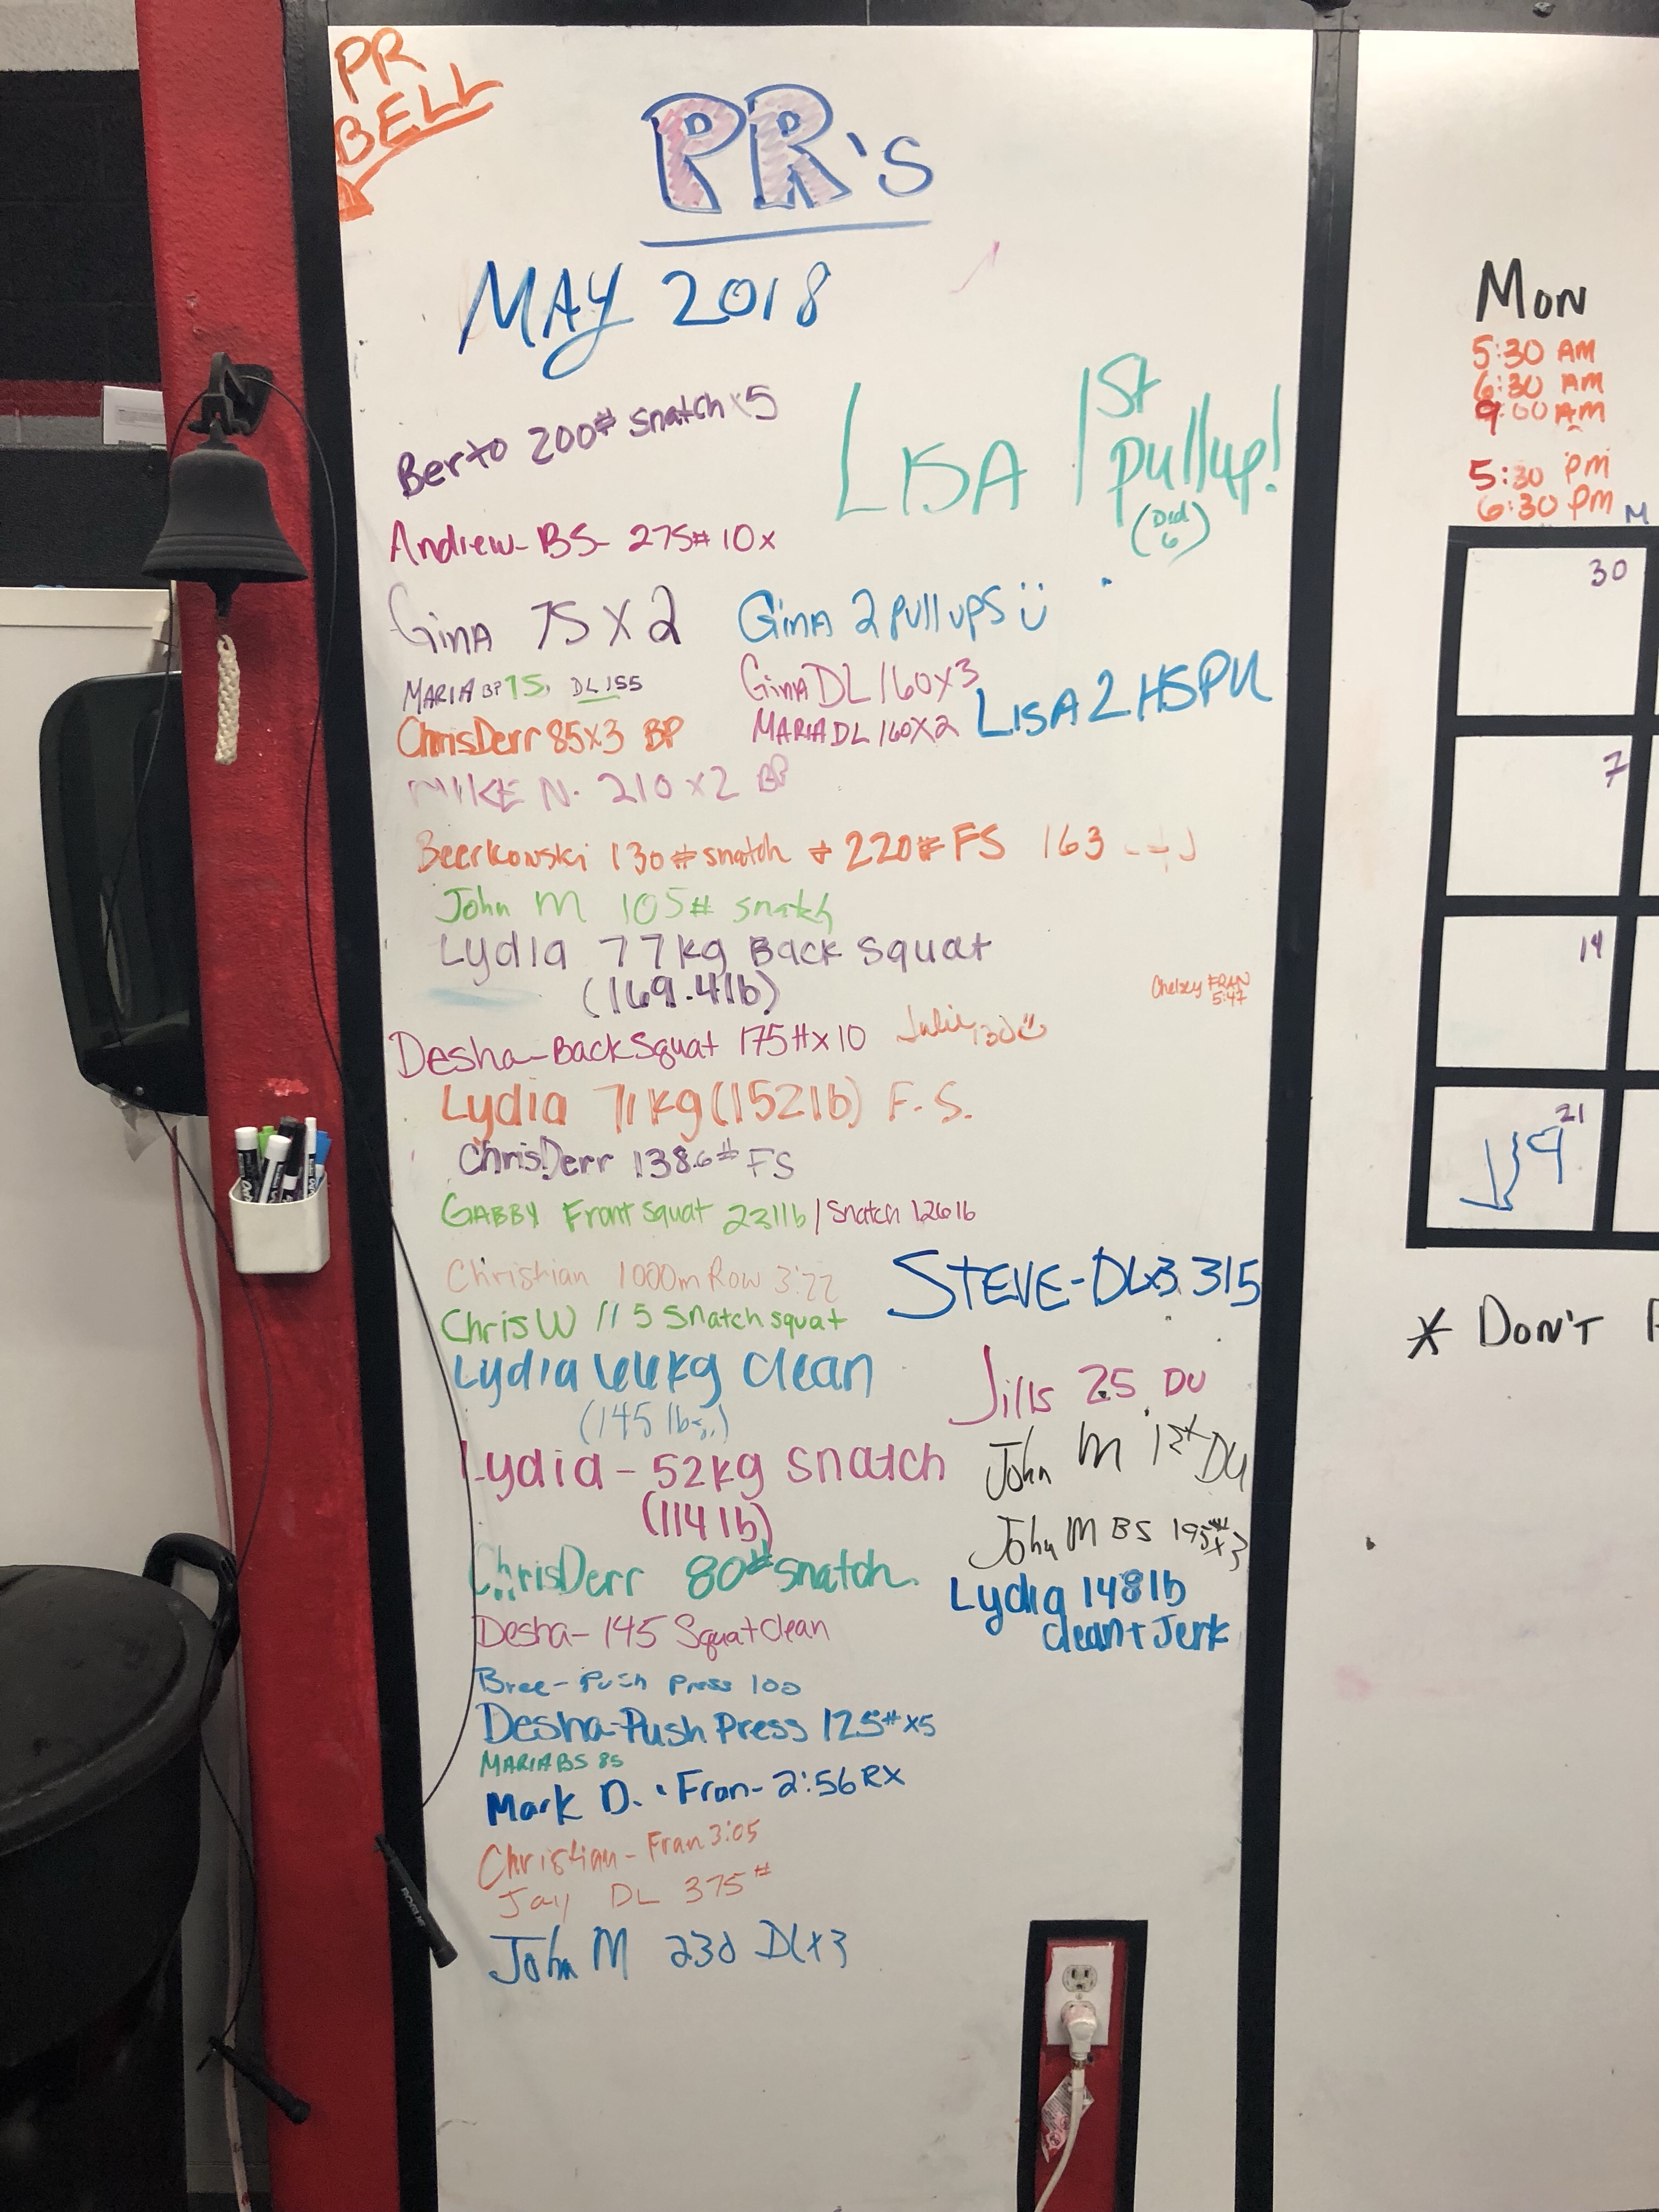 PR
BELL
PR's
MAY 2018
Berto 200# snatch x5
LISA 1st
pullup!
(Did
6)
Andrew- BS- 275# 10x
GINA 75 X 2
GINA 2 PULLUPS
MARIA BP 75, DL 155
GINA DL 160X3
LISA 2 HSPU
ChrisDerr 85x3 BP
MARIA DL 160X2
MIKE N. 210 x2 BP
Beerkowski 130# snatch + 220# FS 163
John M 105# snatch
Lydia 77kg Back Squat
(169.4lb)
Chelsey FRAN
5:47
Desha-BackSquat 175#x10
Julie 130
Lydia 71kg (152lb) F.S.
ChrisDerr 138.6# FS
GABBY Front squat 231lb / Snatch 126lb
Christian 1000m Row 3:22
STEVE-DLx3 315
Chris W 115 Snatch squat
Lydia 66kg Clean
(145 lbs.)
Jills 25 DU
Lydia - 52kg snatch
(114 lb)
John M 1st DU
John M BS 195# x3
ChrisDerr 80# snatch
Lydia 148lb
clean + Jerk
Desha- 145 Squat Clean
Bree- Push Press 100
Desha-Push Press 125# x5
MARIA BS 85
Mark D. Fran- 2:56 RX
Christian - Fran 3:05
Jay DL 375#
John M 230 DLx3
ROGUE
MON
5:30 AM
6:30 AM
9:00 AM
5:30 PM
6:30 PM
M
30
7
14
21
* DON'T